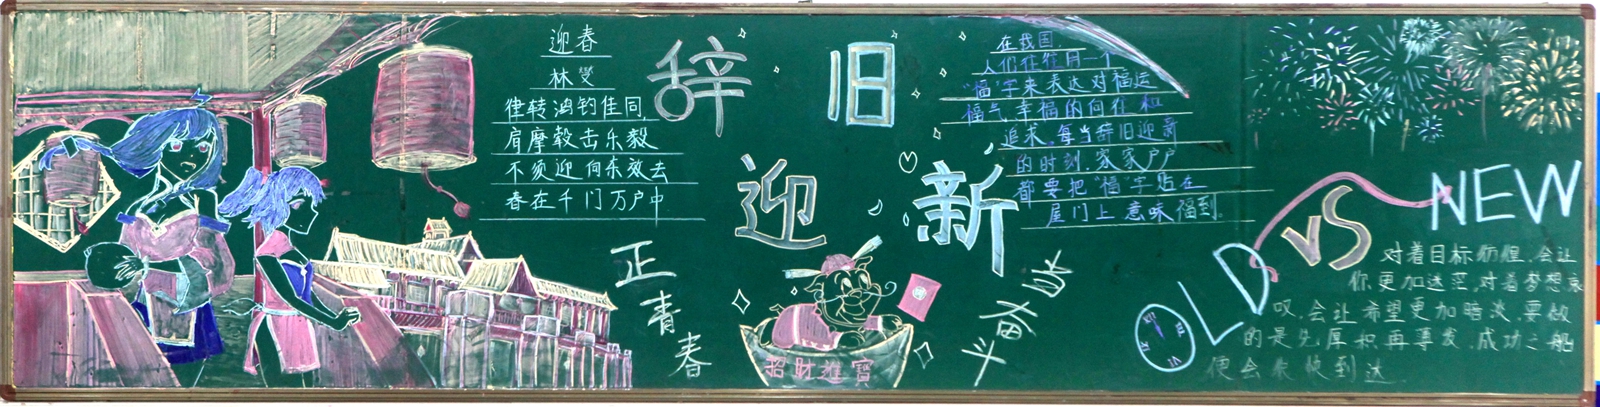 迎春
林燮
律转鸿钧佳同,
肩摩毂击乐毅
不须迎向东效去
春在千门万户中
辞旧
迎新
正青春
当奋斗
招財進寶
在我国
人们往往用一个
"福"字来表达对福运
福气幸福的向往和
追求,每当辞旧迎新
的时刻,家家户户
都要把"福"字贴在
屋门上意味福到。
OLD
VS
NEW
对着目标彷徨,会让
你更加迷茫,对着梦想哀
叹,会让希望更加暗淡,要做
的是先厚积再薄发,成功之船
便会很快到达